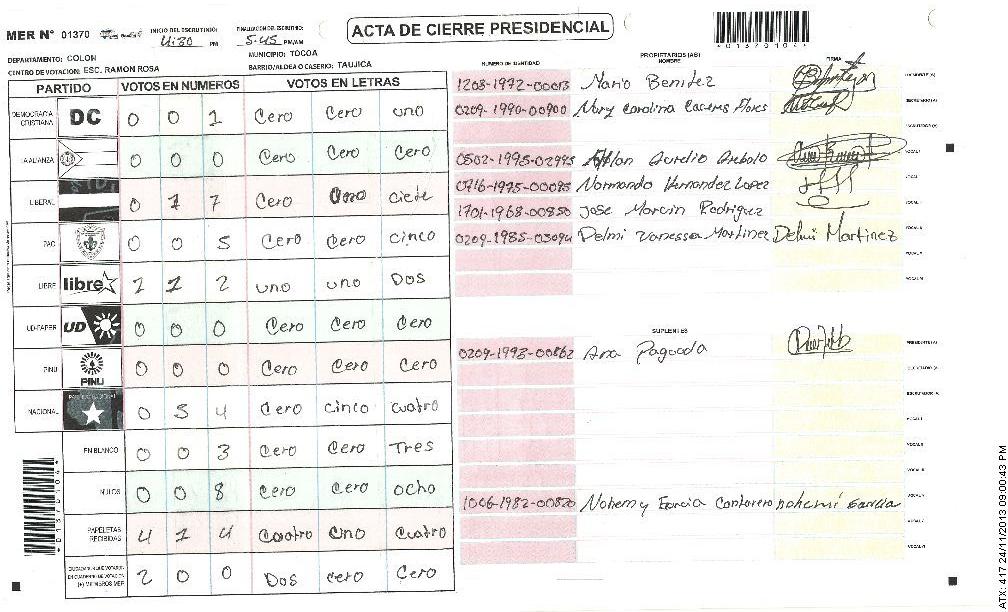 MER N° 01370
INICIO DEL ESCRUTINIO: 4:30 PM
FINALIZACION DEL ESCRUTINIO: 5:45 PM/AM
ACTA DE CIERRE PRESIDENCIAL
*01370104*
DEPARTAMENTO: COLON
MUNICIPIO: TOCOA
CENTRO DE VOTACION: ESC. RAMON ROSA
BARRIO/ALDEA O CASERIO: TAUJICA
PARTIDO VOTOS EN NUMEROS VOTOS EN LETRAS
DEMOCRACIA CRISTIANA DC 0 0 1 Cero Cero uno
LA ALIANZA 0 0 0 Cero Cero Cero
LIBERAL 0 1 7 Cero Uno ciete
PAC 0 0 5 Cero Cero cinco
LIBRE libre 1 1 2 uno uno Dos
UD-FAPER UD 0 0 0 Cero Cero Cero
PINU PINU 0 0 0 Cero Cero Cero
NACIONAL 0 5 4 Cero cinco cuatro
EN BLANCO 0 0 3 Cero Cero Tres
NULOS 0 0 8 Cero Cero ocho
PAPELETAS RECIBIDAS 4 1 4 Cuatro Uno Cuatro
CIUDADANOS QUE VOTARON EN CUADERNO DE VOTACION (+) MIEMBROS MER 2 0 0 Dos cero Cero
NUMERO DE IDENTIDAD PROPIETARIOS (AS) NOMBRE FIRMA
1208-1972-00013 Mario Benitez PRESIDENTE (A)
0209-1990-00900 Nory Carolina Caceres Flores SECRETARIO (A)
ESCRUTADOR (A)
0502-1995-02995 Aurelio VOCAL I
0716-1975-00095 Normando Hernandez Lopez VOCAL
1701-1968-00850 Jose Marcin Rodriguez VOCAL
0209-1985-03094 Delmi Vanessa Martinez Delmi Martinez VOCAL
VOCAL
VOCAL
SUPLENTES
0209-1993-00862 Ana Pagoada PRESIDENTE (A)
SECRETARIO (A)
ESCRUTADOR (A)
VOCAL I
VOCAL II
VOCAL
1006-1982-00820 Nohemy Garcia Contorero nohemi Garcia VOCAL
VOCAL
VOCAL
*01370104*
ATX: 417 24/11/2013 09:00:43 PM